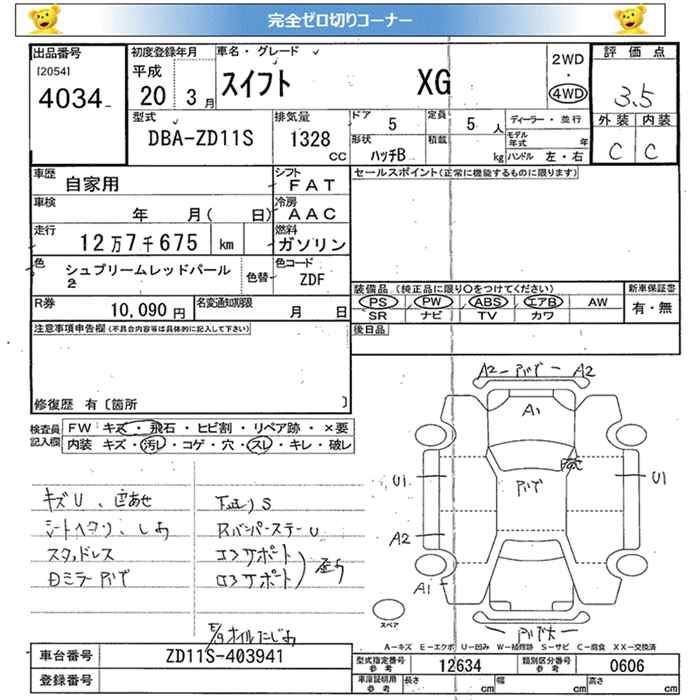 完全ゼロ切りコーナー
出品番号
[2054]
4034
初度登録年月
平成
20 3月
車名・グレード
スイフト XG
2WD
・
4WD
評価点
3.5
外装 内装
C C
型式
DBA-ZD11S
排気量
1328
CC
ドア
5
定員
5 人
形状
ハッチB
積載
kg
ディーラー・並行
モデル年式 年
ハンドル 左・右
車歴
自家用
シフト
FAT
車検
年 月( 日)
冷房
AAC
走行
12万7千675 km
燃料
ガソリン
色
シュプリームレッドパール
2
色替
色コード
ZDF
R券
10,090 円
名変通知期限
月 日
セールスポイント(正常に機能するものに限ります)
装備品 (純正品に限り○をつけてください)
PS PW ABS エアB AW
SR ナビ TV カワ
新車保証書
有・無
後日品
注意事項申告欄(不具合内容等は具体的に記入して下さい)
修復歴 有 [箇所 ]
検査員記入欄
FW キズ・飛石・ヒビ割・リペア跡・×要
内装 キズ・汚レ・コゲ・穴・スレ・キレ・破レ
キズU、色あせ
シートヘタリ、しわ
スタッドレス
下廻りS
RバンパーステーU
コアサポート
ロアサポート
A2 A2
A1
U1 U1
A2
A1
スペア
A－キズ E－エクボ U－凹み W－補修跡 S－サビ C－腐食 XX－交換済
車台番号
ZD11S-403941
登録番号
型式指定番号
参考
12634
類別区分番号
参考
0606
車庫証明用
参考
長さ cm
幅 cm
高さ cm